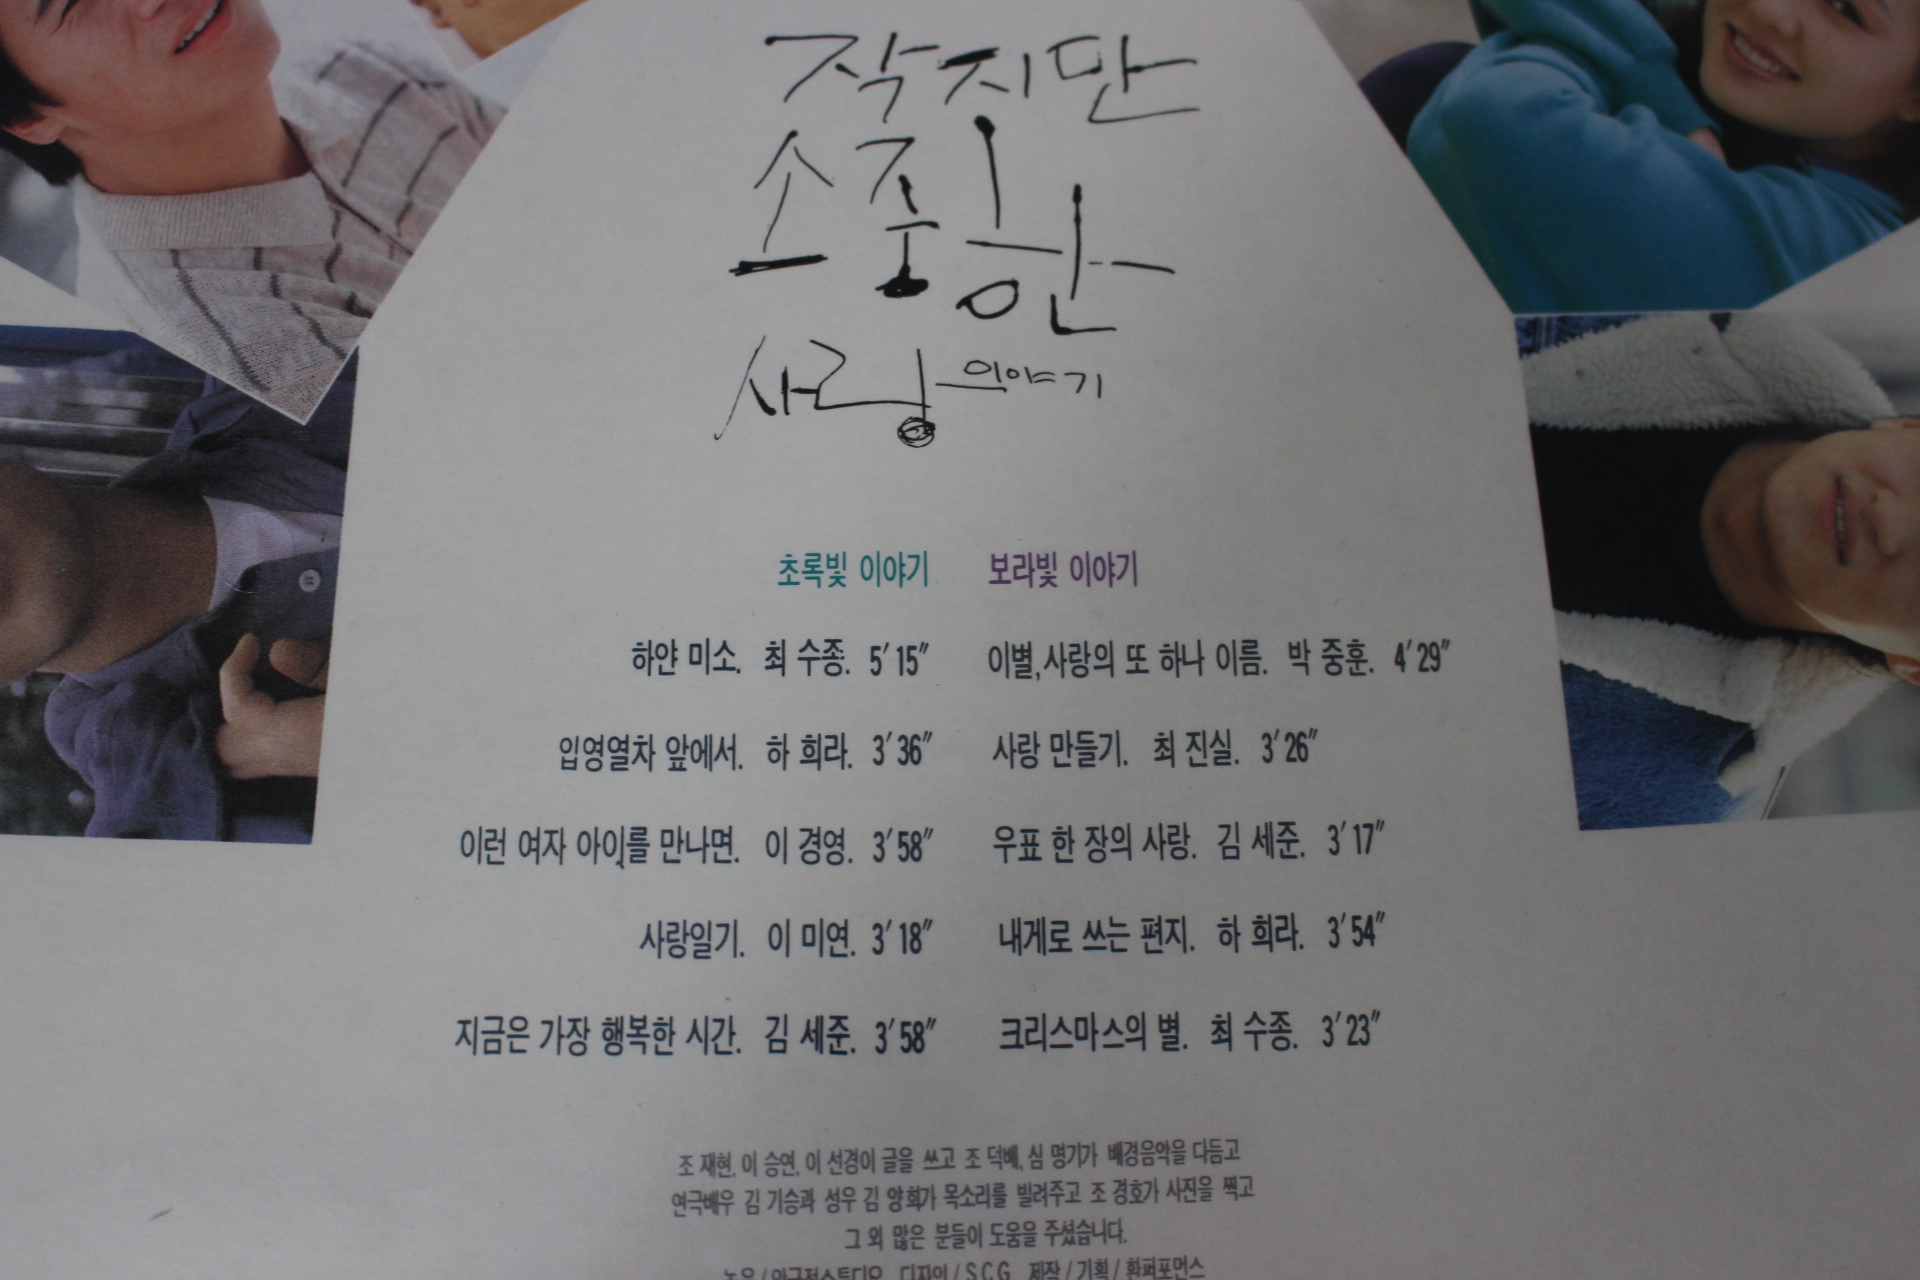 작지만
소중한
사랑 이야기
초록빛 이야기
하얀 미소. 최 수종. 5′15″
입영열차 앞에서. 하 희라. 3′36″
이런 여자 아이를 만나면. 이 경영. 3′58″
사랑일기. 이 미연. 3′18″
지금은 가장 행복한 시간. 김 세준. 3′58″
보라빛 이야기
이별,사랑의 또 하나 이름. 박 중훈. 4′29″
사랑 만들기. 최 진실. 3′26″
우표 한 장의 사랑. 김 세준. 3′17″
내게로 쓰는 편지. 하 희라. 3′54″
크리스마스의 별. 최 수종. 3′23″
조 재현, 이 승연, 이 선경이 글을 쓰고 조 덕배, 심 명기가 배경음악을 다듬고
연극배우 김 기승과 성우 김 양희가 목소리를 빌려주고 조 경호가 사진을 찍고
그 외 많은 분들이 도움을 주셨습니다.
녹음/ 디자인/S.C.G 제작/기획/환퍼포먼스